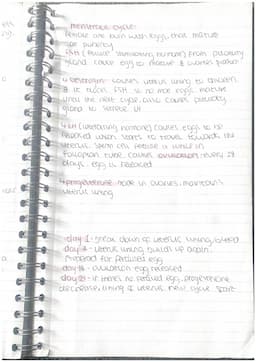 menstrual cycle:
female are born with eggs, that mature
at puberty
FSH ( follicle stimulating hormone) from pituitary
gland cause egg to mature & ovaries produce
oestrogen causes uterus lining to thicken
& it FSH so no more eggs mature
until the next cycle. also causes pituitary
gland to LH
LH (luteinising hormone) causes egg to be
released when starts to travel towards the
uterus. Sperm can fertilise it while in
fallopian tube. causes ovulation every 28
days. egg is released
progesterone made in ovaries. maintains
uterus lining
day 1 - break down of uterus lining,
day 4 - uterus lining builds up again
prepared for fertilised egg
day 14 - ovulation egg released
day 28 - if there's no fertilised egg, progesterone
decrease, lining of uterus. new cycle start